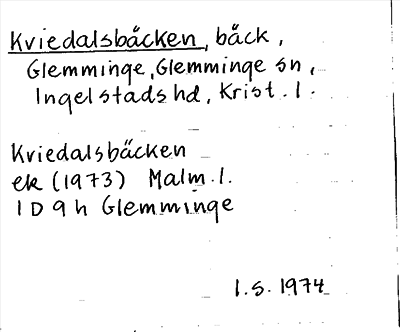 Kviedalsbäcken, bäck,
Glemminge, Glemminge sn,
Ingelstads hd, Krist. l.
Kviedalsbäcken
ek (1973) Malm. l.
1 D 9 h Glemminge
I.S. 1974